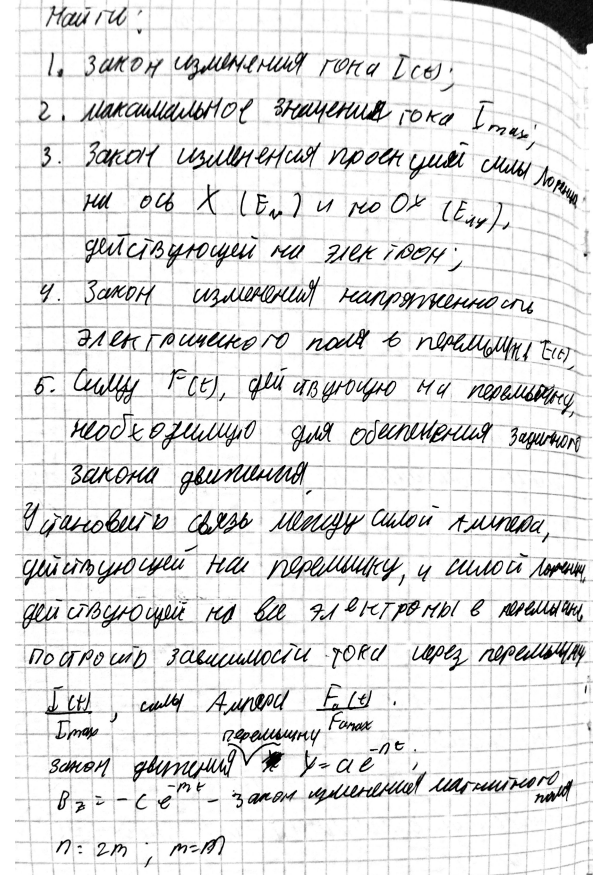 Найти:
1. Закон изменения тока I(t);
2. максимальное значения тока I max;
3. Закон изменения проекций силы Лоренца
на ось X (F ) и на OY (F лy),
действующей на электрон;
4. Закон изменения напряженность
электрического поля в перемычке E(t),
5. Силу F(t), действующую на перемычку,
необходимую для обеспечения заданного
закона движения.
Установить связь между силой Ампера,
действующей на перемычку, и силой Лоренца,
действующей на все электроны в перемычке
построить зависимости тока через перемычку
I(t)/Imax, силы Ампера Fa(t)/Famax.
перемычки
закон движения y=ae^-nt;
Bz = -ce^-mt - закон изменения магнитного поля
n=2m; m=m